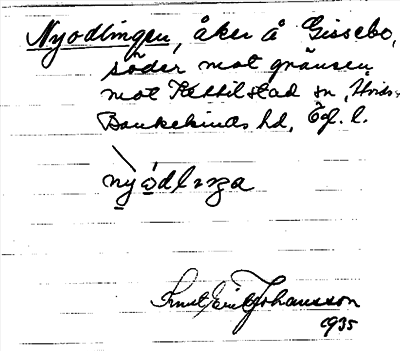 Nyodlingen, åker å Gissebo,
söder mot gränsen
mot Kettilstad sn, Hvids-
Bankekinds hd, Ög. l.
nyódlıŋa
Knut Erik Johansson
1935